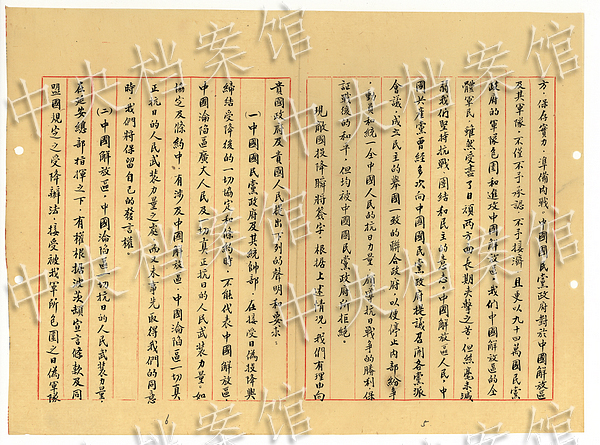 方，保存實力，準備內戰。中國國民黨政府對於中國解放區
及其軍隊，不僅不予承認，不予接濟，且更以九十四萬國民黨
政府的軍隊包圍和進攻中國解放區。我們中國解放區的全
體軍民，雖然受盡了日頑兩方面長期夾擊之苦，但絲毫未減
弱我們堅持抗戰、團結和民主的意志。中國解放區人民，中
國共產黨曾經多次向中國國民黨政府提議召開各黨派
會議，成立民主的舉國一致的聯合政府，以便停止內部紛爭
，動員和統一全中國人民的抗日力量，領導抗日戰爭的勝利，保
証戰後的和平。但均被中國國民黨政府所拒絕。
現敵國投降瞬將簽字，根據上述情況，我們有理由向
5
貴國政府及貴國人民提出下列的聲明和要求：
（一）中國國民黨政府及其統帥部，在接受日偽投降與
締結受降後的一切協定和條約時，不能代表中國解放區、
中國淪陷區廣大人民及一切真正抗日的人民武裝力量。如
協定及條約中，有涉及中國解放區、中國淪陷區一切真
正抗日的人民武裝力量之處，而又未事先取得我們的同意
時，我們將保留自己的發言權。
（二）中國解放區，中國淪陷區一切抗日的人民武裝力量，
在延安總部指揮之下，有權根據波茨頓宣言條款及同
盟國規定之受降辦法，接受被我軍所包圍之日偽軍隊
6
中央档案馆